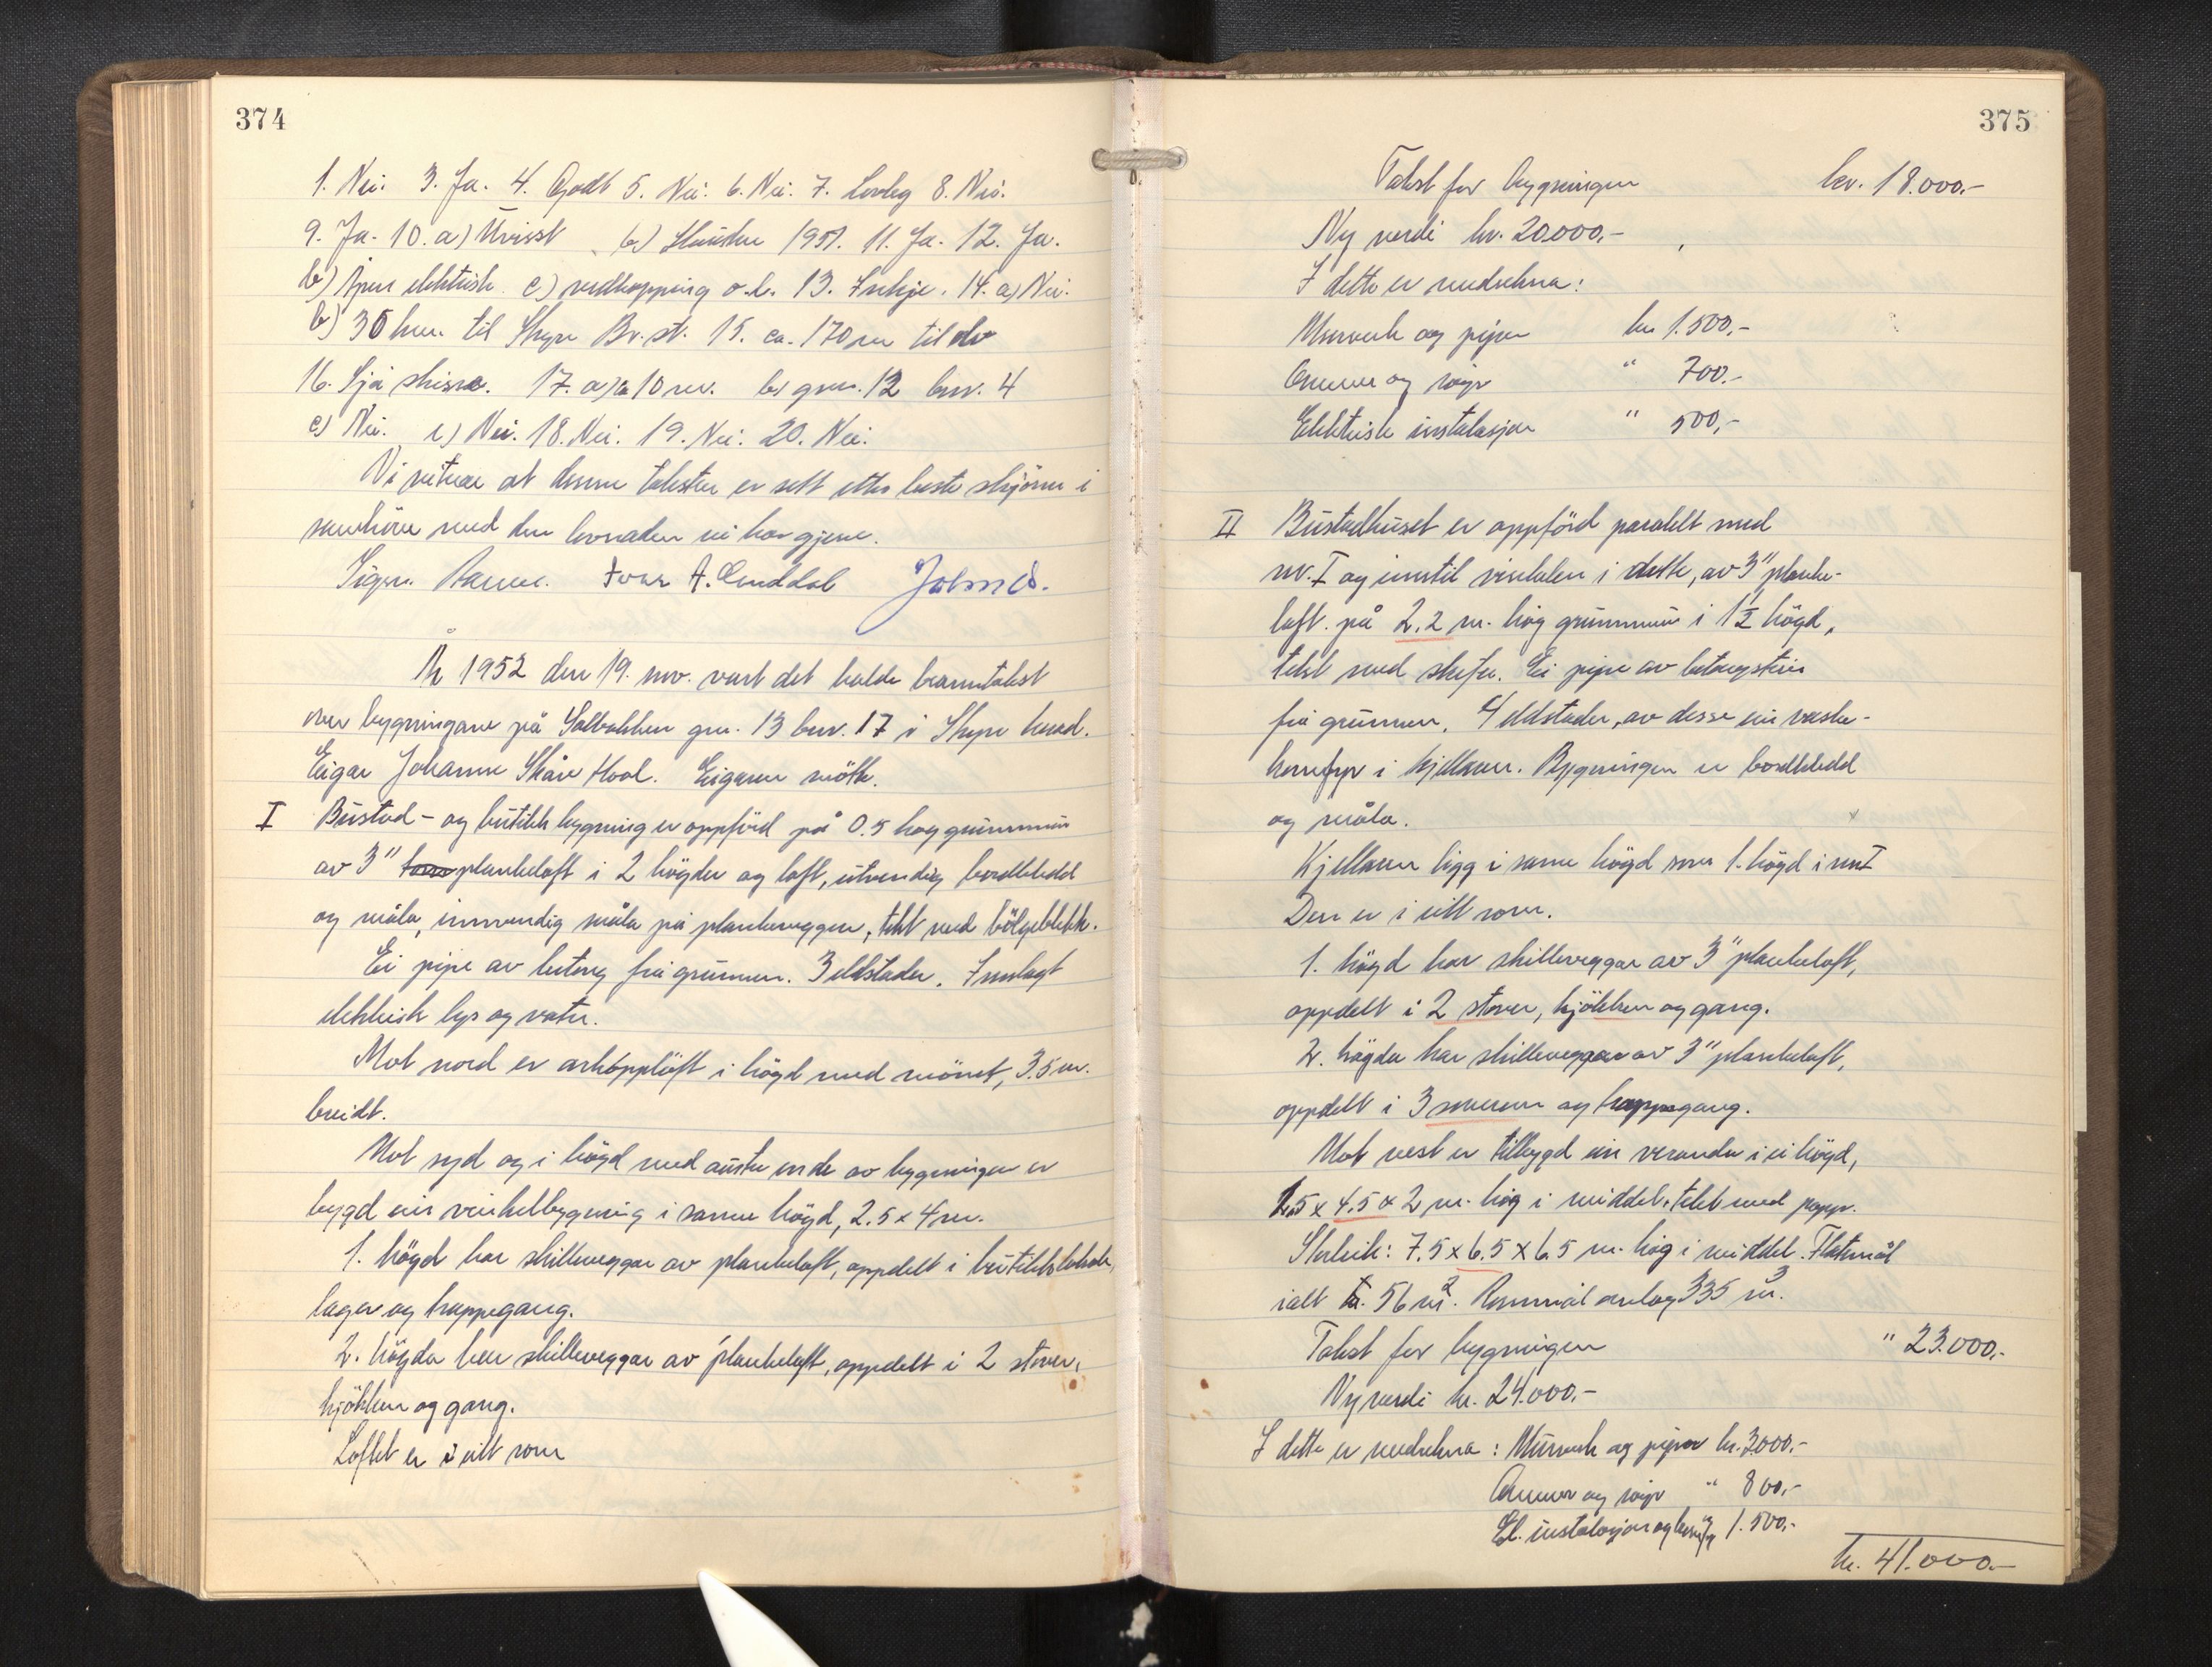 374
1. Nei. 3. Ja. 4. Godt 5. Nei. 6. Nei. 7. Lovleg 8. Nei.
9. Ja. 10. a) Uvisst b) Hausten 1951. 11. Ja. 12. Ja.
b) Open elektrisk. c) vedhopping o.l. 13. Inkje. 14. a) Nei.
b) 30 km. til Stryn Br. st. 15. ca. 170 m til elv
16. Sjå skisse. 17. a) ca 10 m. b) gnr. 12 bnr. 4
c) Nei. e) Nei. 18. Nei. 19. Nei. 20. Nei.
Vi vitnar at denne taksten er sett etter beste skjönn i
samhöve med den lovnaden vi har gjeve.
Sigm. Ivar A.
År 1952 den 19. nov. vart det halde branntakst
over bygningane på Solbakken gnr. 13 bnr. 17 i Stryn herad.
Eigar Johanne Skåre Hool. Eigaren mötte.
I Bustad- og butikkbygning er oppförd på 0.5 hög grunnmur
av 3" plankelaft i 2 högder og loft, utvendig bordkledd
og måla, innvendig måla på plankeveggen, tekt med bölgeblekk.
Ei pipe av betong frå grunnen. 3 eldstader. Innlagt
elektrisk lys og vatn.
Mot nord er arkopplöft i högd med mönet, 3.5 m.
breidt.
Mot syd og i högd med austre ende av bygningen er
bygd ein vinkelbygning i same högd, 2.5 x 4 m.
1. högd har skilleveggar av plankelaft, oppdelt i butikklokale,
lager og trappegang.
2. högda har skilleveggar av plankelaft, oppdelt i 2 stover,
kjökken og gang.
Loftet er i eitt rom
375
Takst for bygningen kr. 18.000.-
Ny verdi kr. 20.000,-
I dette er medrekna:
Murverk og piper kr. 1.500,-
Omnar og rör " 700.-
Elektrisk instalasjon " 500,-
II Bustadhuset er oppförd paralelt med
nr. I og inntil vinkelen i dette, av 3" planke-
laft på 2.2 m. hög grunnmur i 1½ högd,
tekt med skifer. Ei pipe av betongstein
frå grunnen. 4 eldstader, av desse ein vaske-
 i kjellaren. Bygningen er bordkledd
og måla.
Kjellaren ligg i same högd som 1. högd i nr I
Den er i eitt rom.
1. högd har skilleveggar av 3" plankelaft,
oppdelt i 2 stover, kjökken og gang.
2. högda har skilleveggar av 3" plankelaft,
oppdelt i 3 soverom og trappegang.
Mot vest er tilbygd ein veranda i ei högd,
1.5 x 4.5 x 2 m. hög i middel, tekt med papp.
Storleik: 7.5 x 6.5 x 6.5 m. hög i middel. Flatemål
ialt ca. 56 m². Rommål omlag 335 m³.
Takst for bygningen " 23.000,-
Nyverdi kr. 24.000,-
I dette er medrekna: Murverk og piper kr. 3.000,-
Omnar og rör " 800,-
El. instalasjon og 1.500,-
kr. 41.000.-